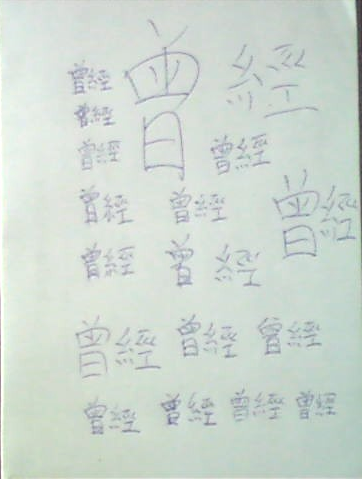 曾經 曾經
曾經
曾經 曾經
曾經 曾經 曾經
曾經 曾經
曾經 曾經 曾經
曾經 曾經 曾經 曾經